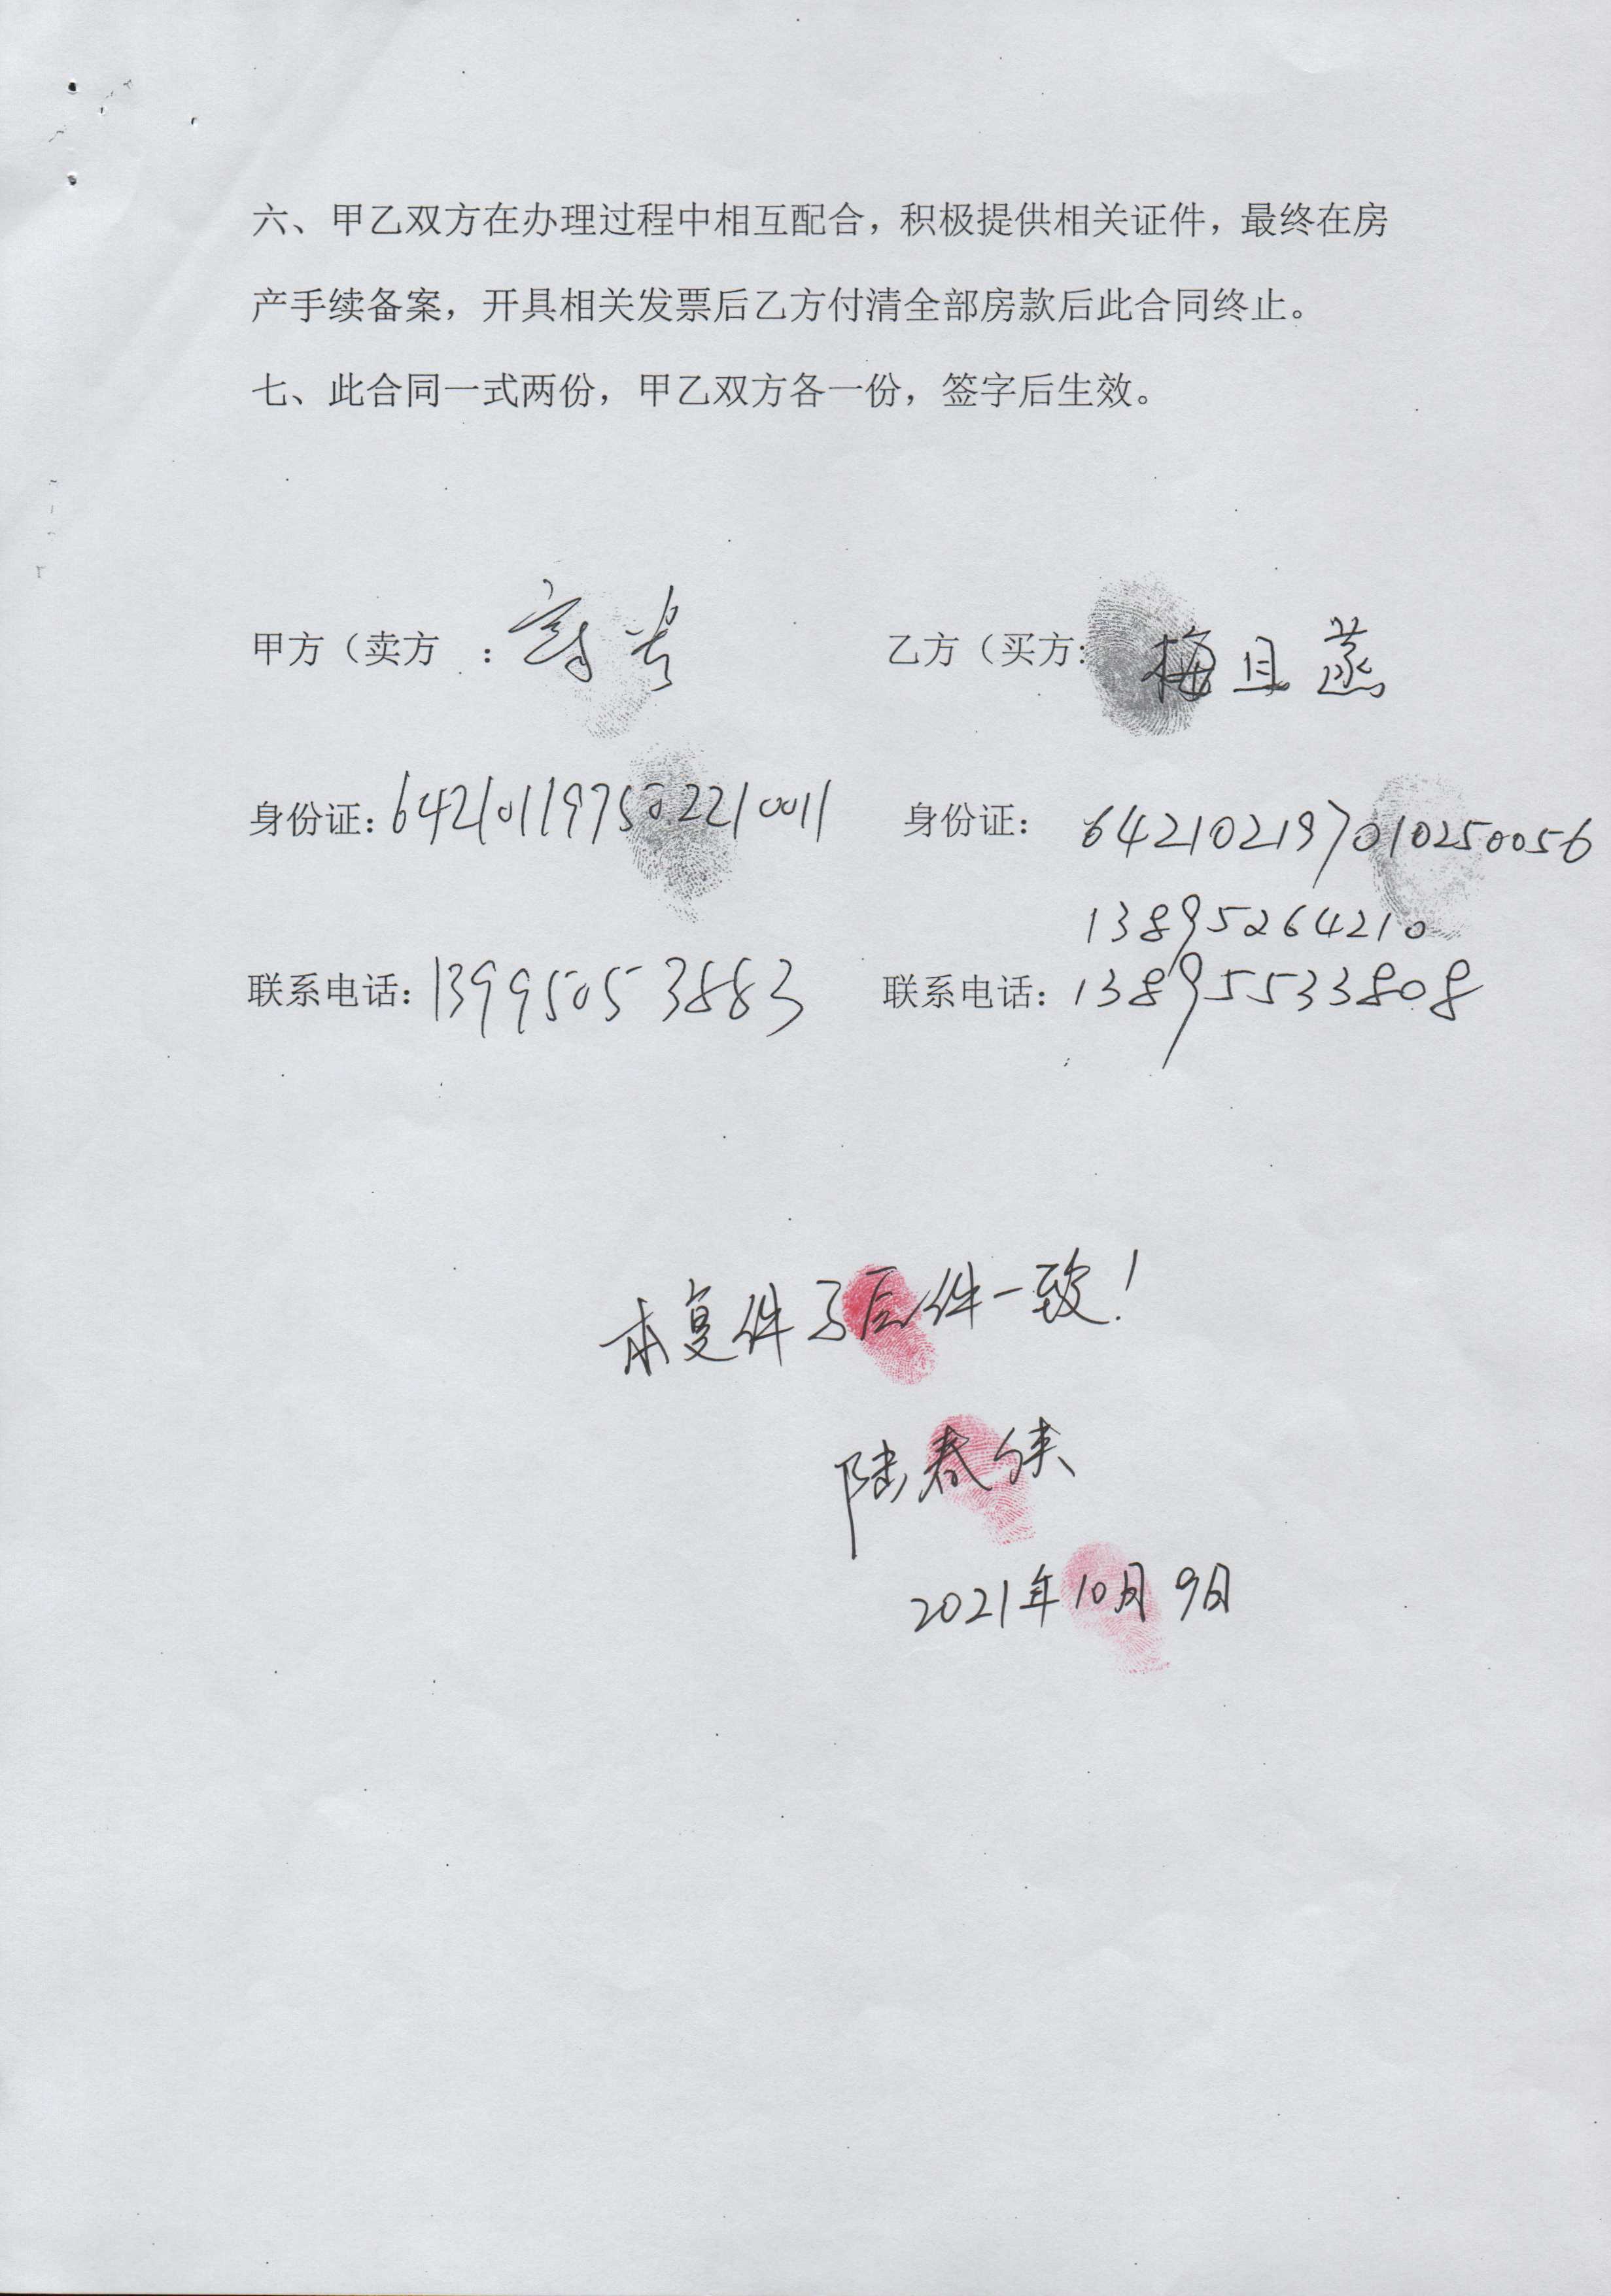 六、甲乙双方在办理过程中相互配合，积极提供相关证件，最终在房
产手续备案，开具相关发票后乙方付清全部房款后此合同终止。
七、此合同一式两份，甲乙双方各一份，签字后生效。
甲方（卖方 ： 乙方（买方: 梅且燕
身份证：642101197502210011 身份证： 642102197010250056
13895264210
联系电话：13995053883 联系电话：13895533808
本复件与原件一致！
陆春侠
2021年10月9日